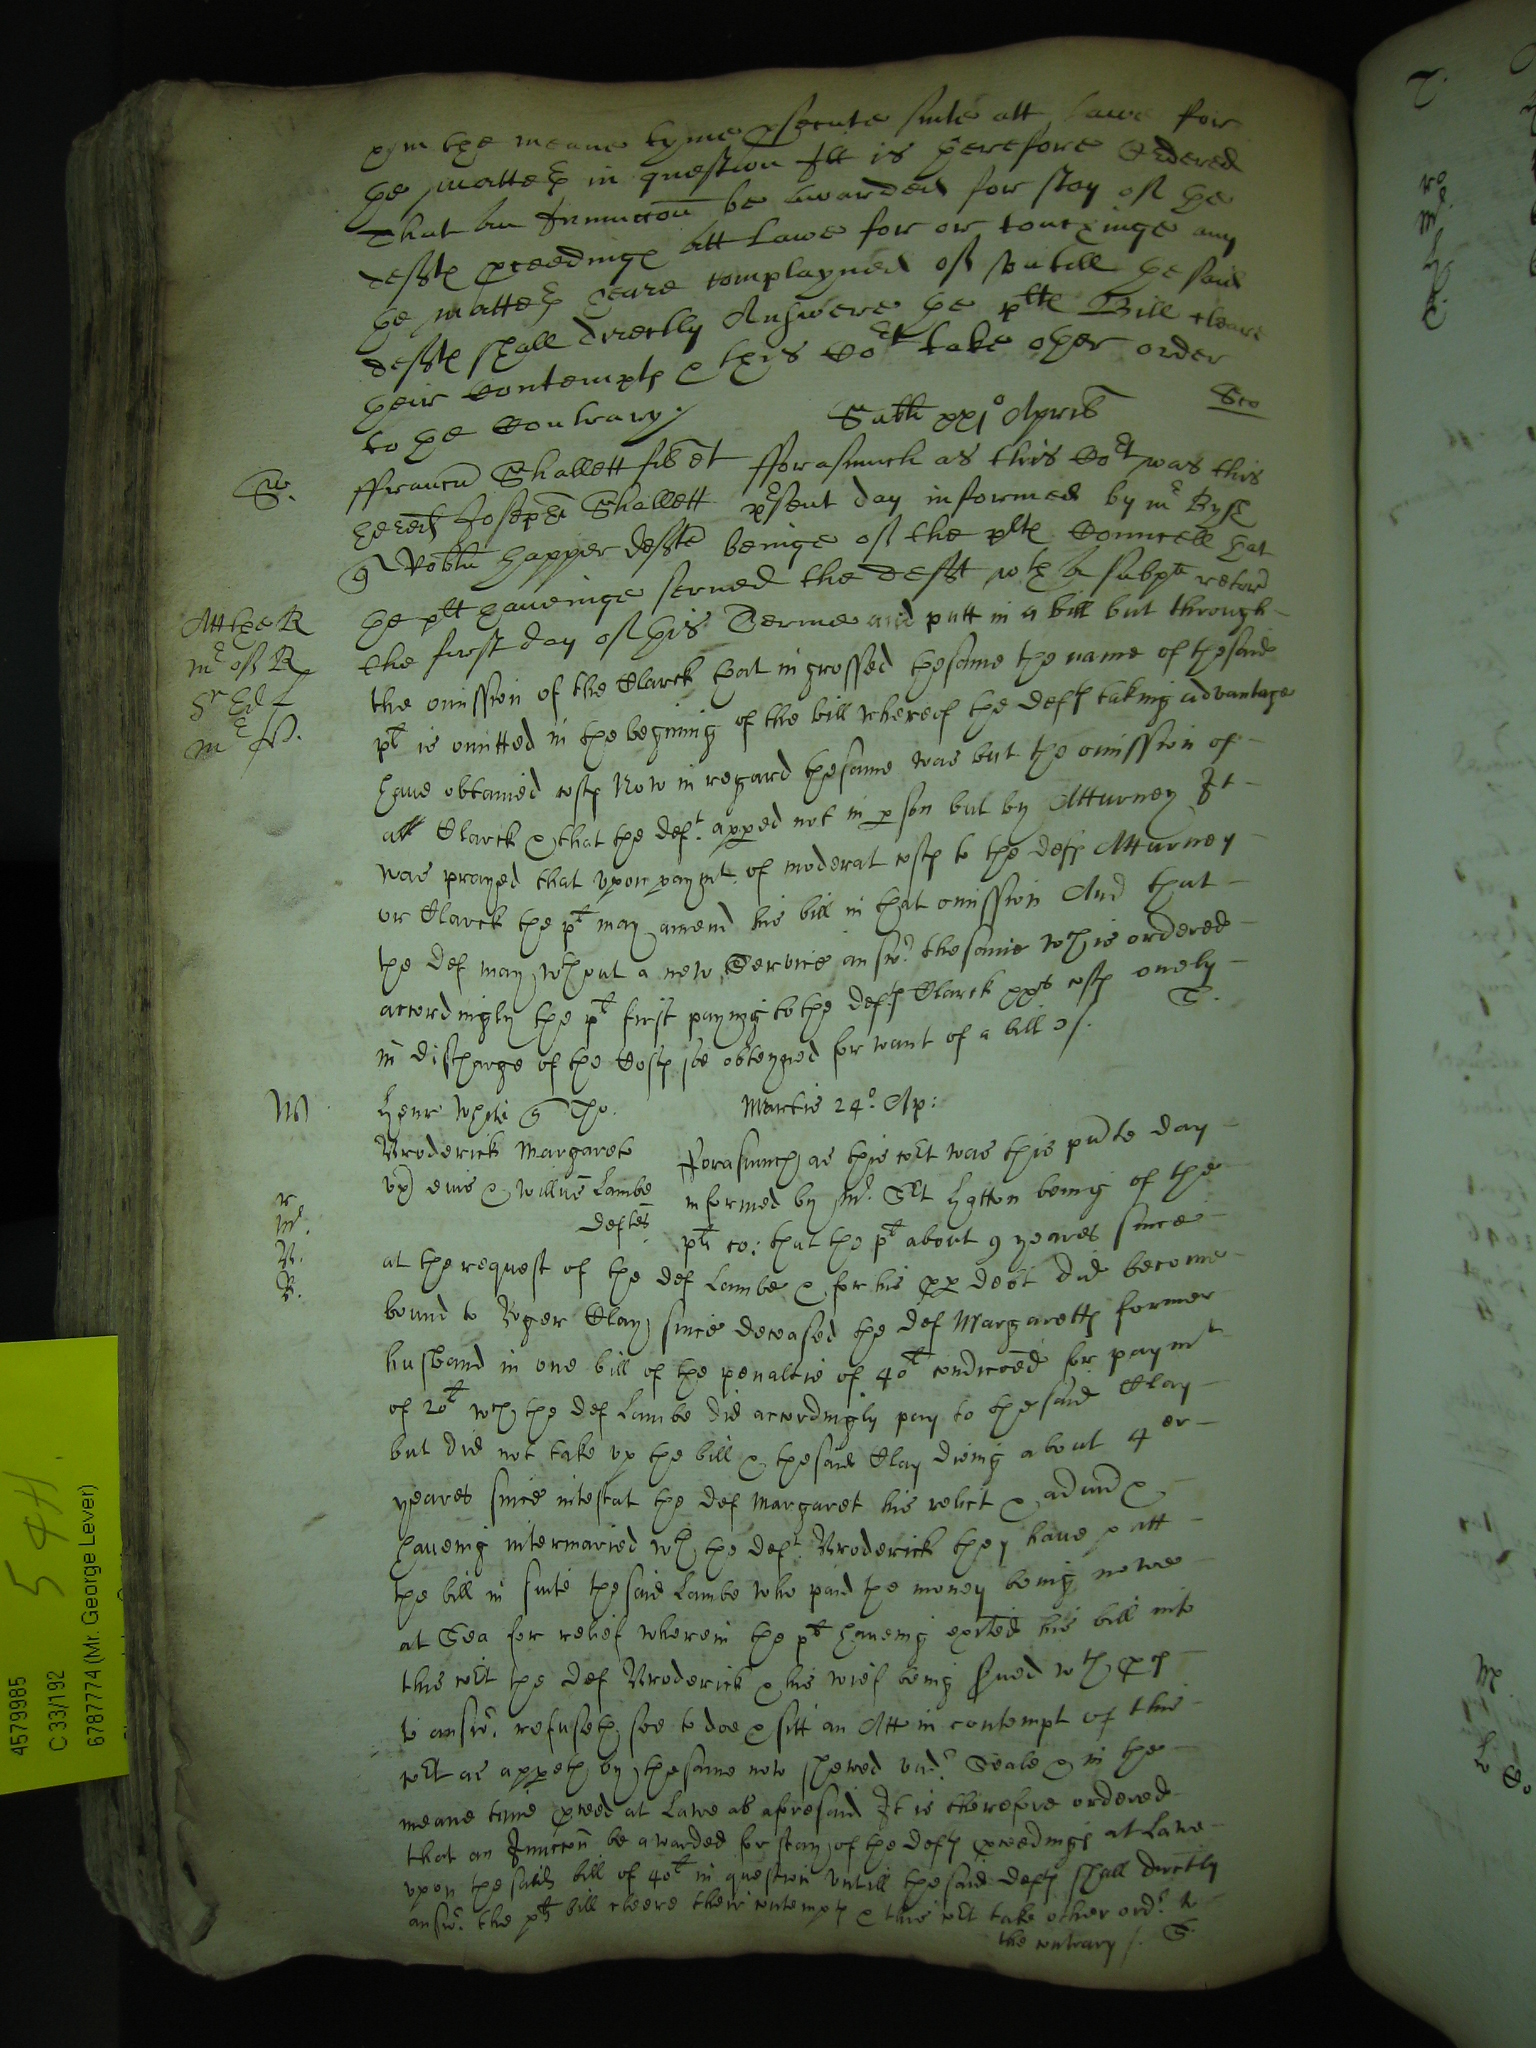 in the meane tyme prsecute suite att Lawe for
the matter in question Itt is therefore Ordered
that an Iniunccon be awarded for stay of the
defts proceedings att Lawe for or touchinge any
the matters heare complayned of vntill the said
defts shall directly Answere the plts Bill cleare
their Contempts & this Cort take other order
to the Contrary
Sabti xxio Aprilis
ffrancus Shallett fil et
hered Joseph Shallett
q Robtu happer deften
fforasmuch as this Cort was this
present day informed by mr Rysh
beinge of the plts Councell that
Att the R
mr of R
Sr Ed
mr
the plt haueinge serued the deft wth a subpa retor
the first day of this Terme and putt in a bill but through
the omission of the Clarck that ingrossed the same the name of the said
plt is omitted in the begining of the bill whereof the defts taking advantage
haue obtained costs Now in regard the same was but the omission of
a Clarck & that the deft appeed not in person but by Atturney It
was prayed that vpon paymt of moderat costs to the defts Atturney
or Clarck the plt may amend his bill in that omission And that
the def may wthout a new Service answr the same wch is ordered
accordingly the plt first paying to the defts Clarck xxs costs onely
in discharge of the Costs soe obteyned for want of a bill
Henr White q Tho.
Broderick Margaret
vx eius & Willm Lambe
deften
Martis 24o Ap:
Forasmuch as this cort was this pnte day
informed by mr Sert Hytton being of the
plts co: that the plt about 9 yeares since
r
mr
R.
B.
at the request of the def Lambe & for his pp debt did become
bound to Roger Clay since deceased the def Margaretts former
husband in one bill of the penaltie of 40l condiconed for paymt
of 20l wch the def Lambe did accordingly pay to the said Clay
but did not take vp the bill & the said Clay dieing about 4er
yeares since intestat the def Margaret his relict & admx
haueing intermaried wth the deft Broderick they haue putt
the bill in suite the said Lambe who paid the money being nowe
at Sea for relief wherein the plt haueing exited his bill into
this cort the def Broderick & his wief being serued wth pces
to answr refuseth soe to doe & sitt an Att in contempt of this
cort as appeth by the same now shewed vndr Seale & in the
meane time pceed at Lawe as aforesaid It is therefore ordered
that an Iniuccon be awarded for stay of the defts pceedings at Lawe
vpon the said bill of 40l in question vntill the said defts shall directly
answr the plts bill cleere their contempts & this cort take other ordr to
the contrary
4579985
C 33/192
6787774 (Mr. George Lever)